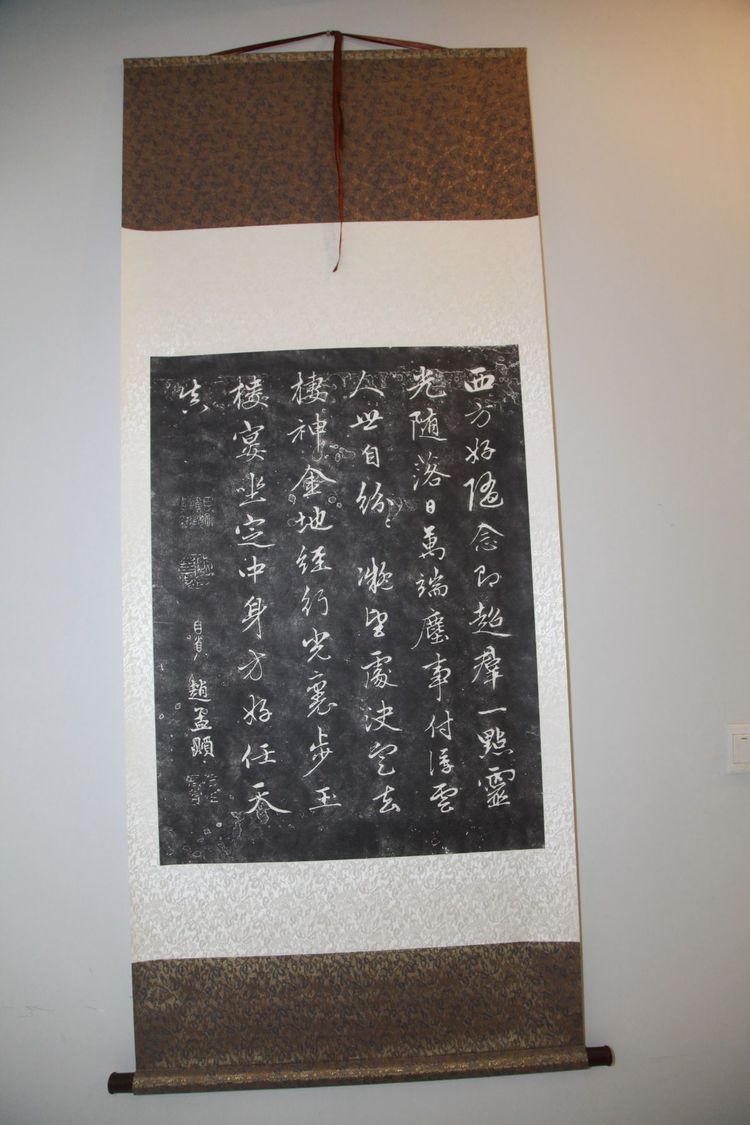 西方好随念即超群一點靈
光随落日萬端塵事付浮雲
人世自紛〻凝望處決定去
棲神金地經行光裏步玉
樓宴坐定中身方好任天
真
趙孟頫